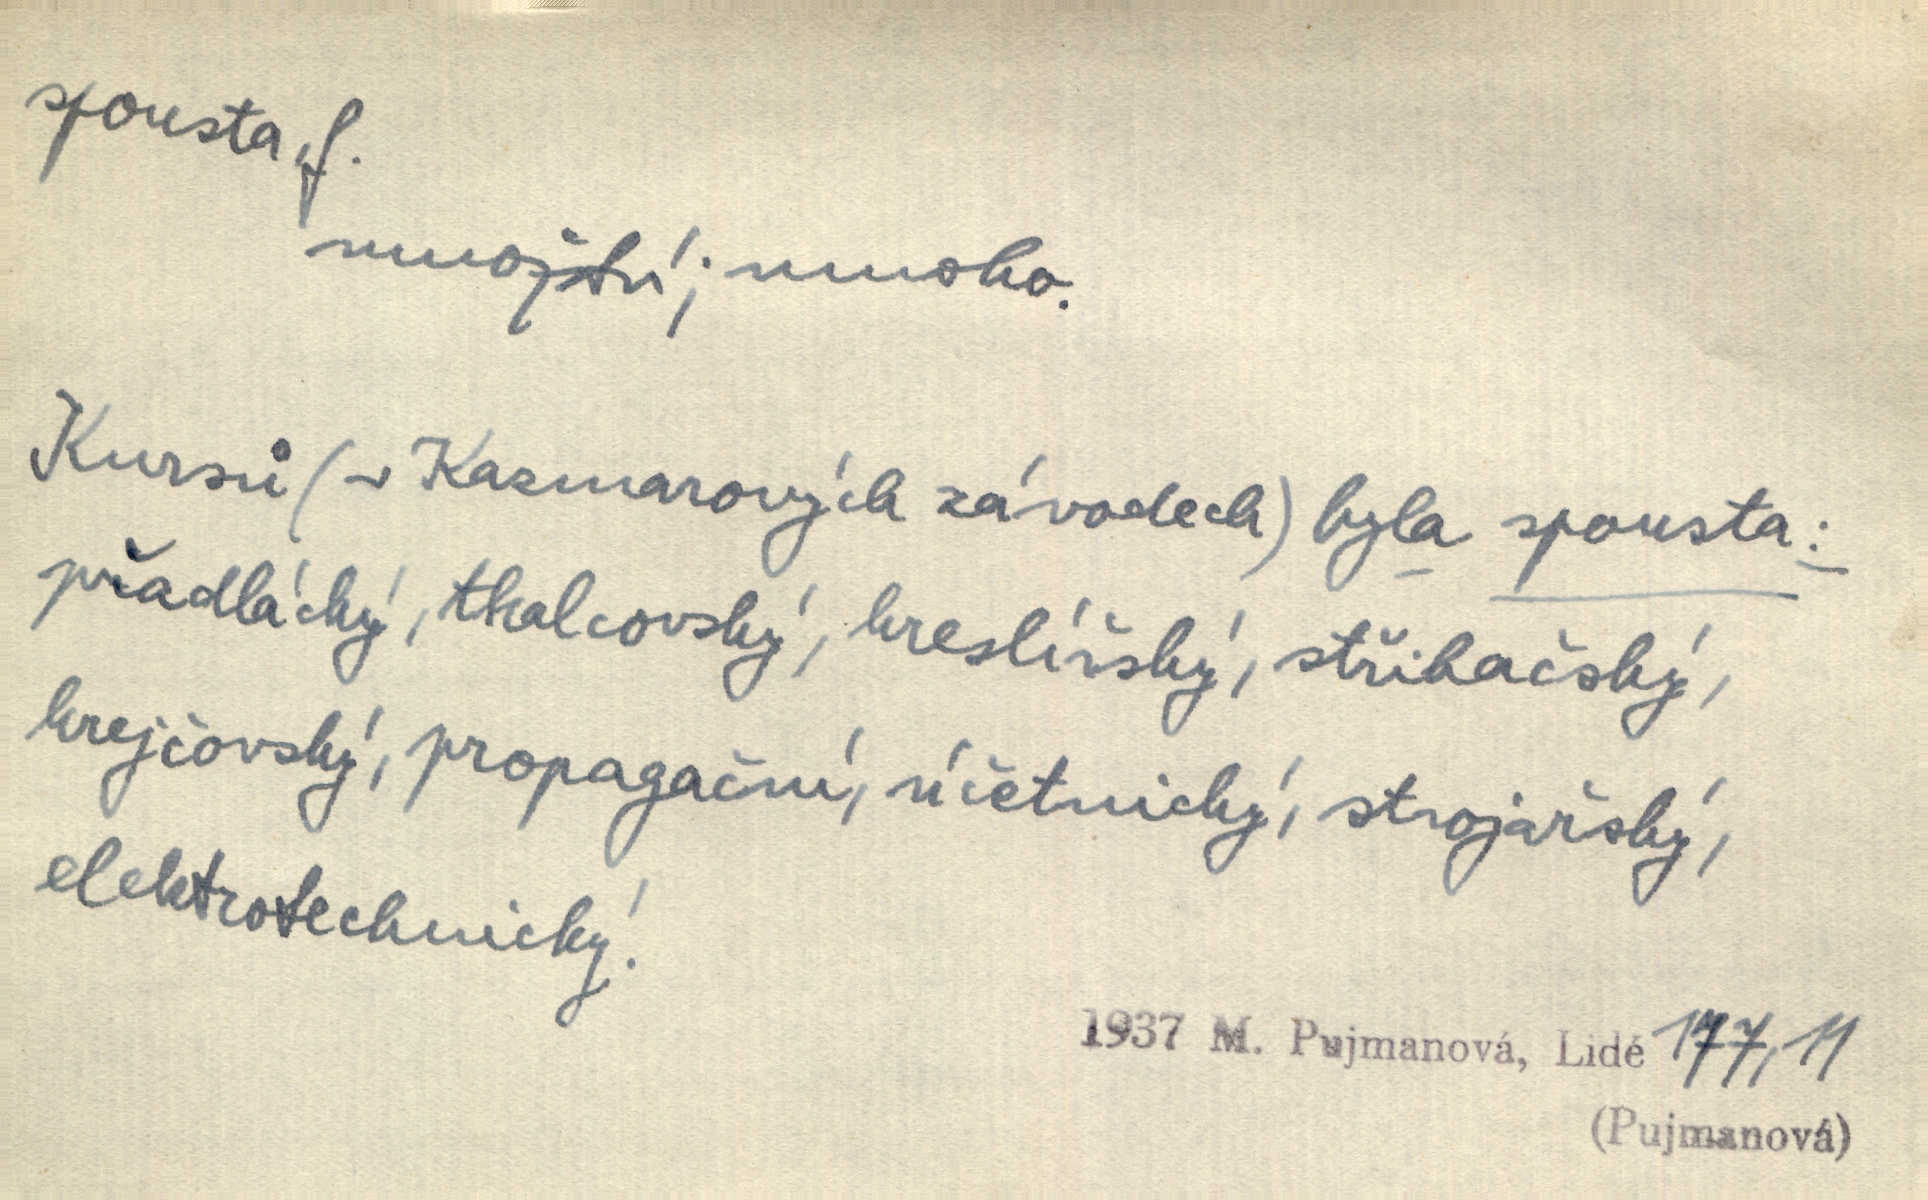 spousta, f.
množství; mnoho.
Kursů (v Kazmarových závodech) byla spousta:
přadlácký, tkalcovský, kreslířský, střihačský,
krejčovský, propagační, účetnický, strojařský,
elektrotechnický.
1937 M. Pujmanová, Lidé 177, 11
(Pujmanová)